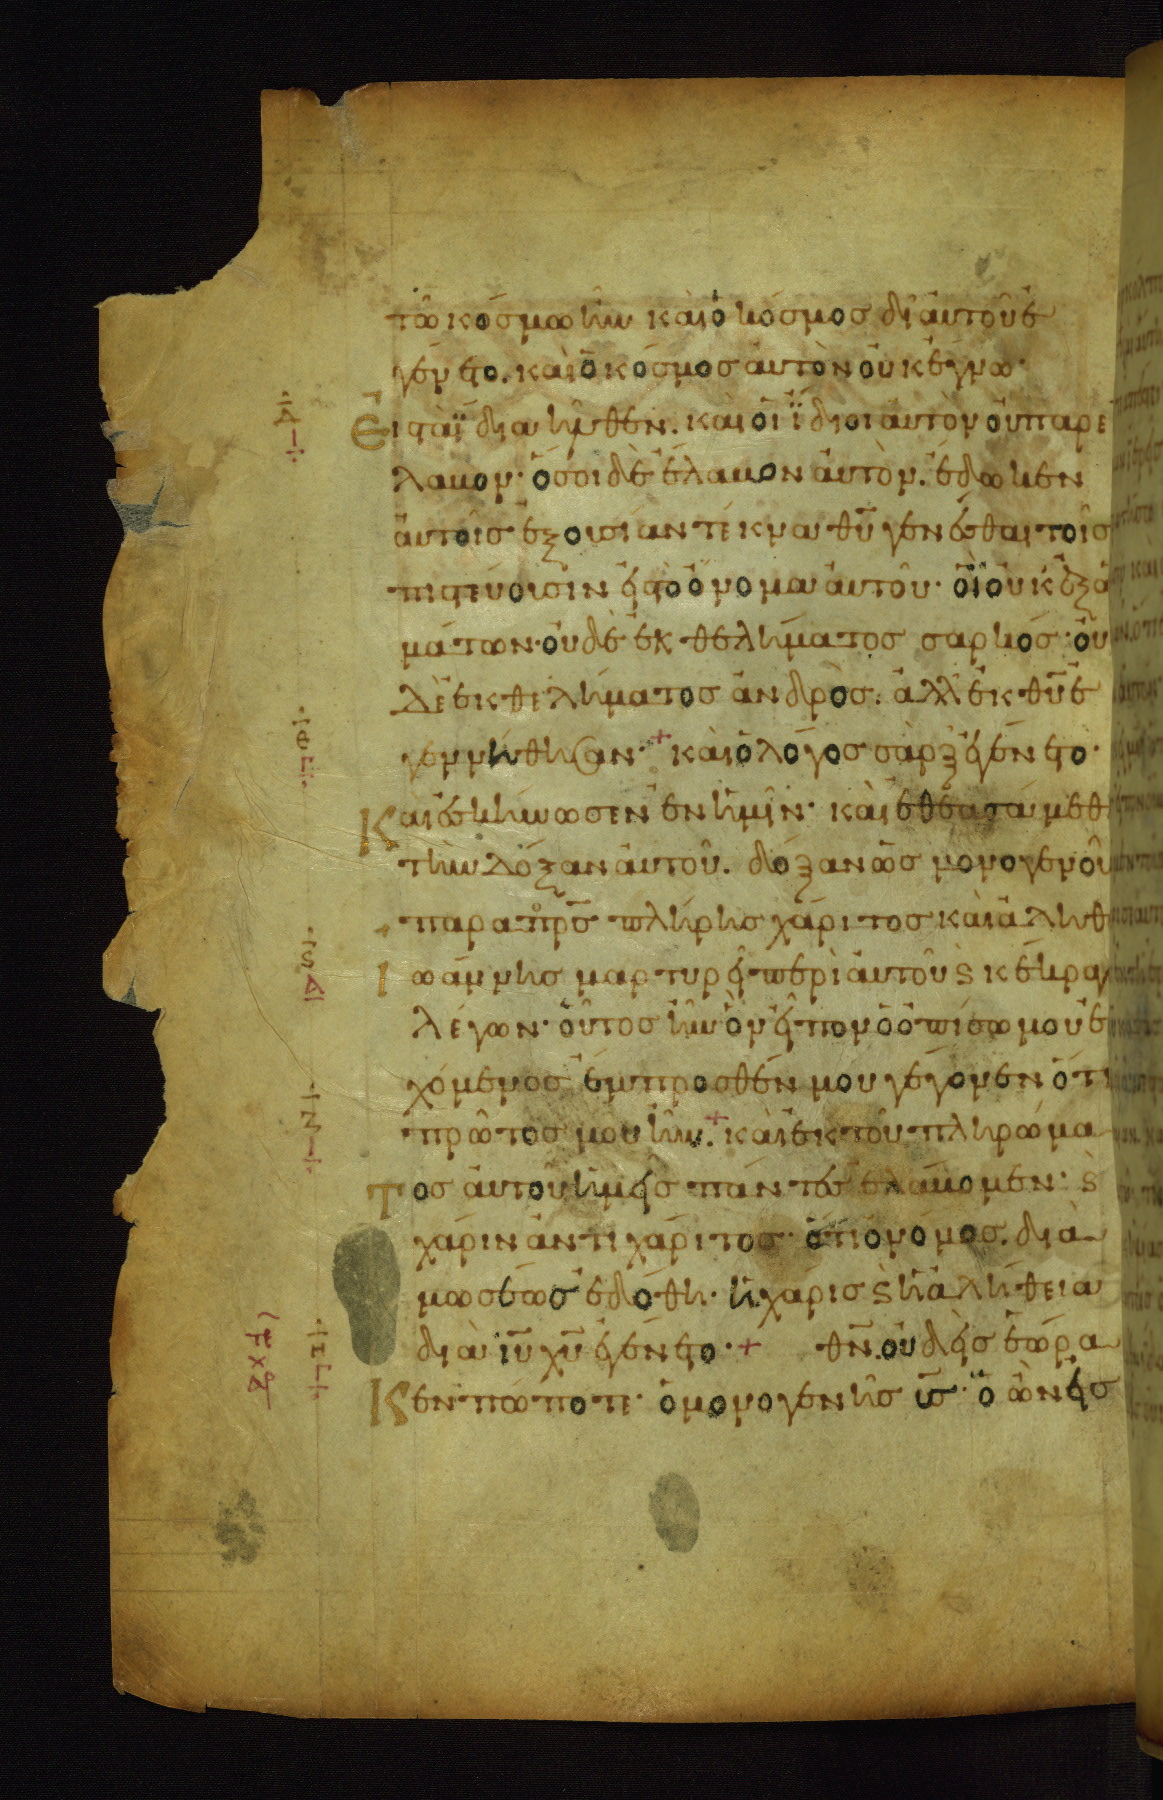 τῶ κόσμω ἦν καὶ ὁ κόσμος δι' ἀυτοῦ ἐ
γένετο. καὶ ὁ κόσμος ἀυτὸν οὐκ ἔγνω·
Εἰς τὰ ἴδια ἦλθεν. καὶ οἱ ἴδιοι ἀυτὸν οὐ παρέ
λαβον· ὅσοι δὲ ἔλαβον ἀυτὸν. ἔδωκεν
ἀυτοῖς ἐξουσίαν τέκνα θῦ γενέσθαι τοῖς
πιστεύουσιν εἰς τὸ ὄνομα ἀυτοῦ· οἳ οὐκ ἐξ αἱ
μάτων· οὐδὲ ἐκ θελήματος σαρκός· οὐ
δὲ ἐκ θελήματος ἀνδρὸς. ἀλλ' ἐκ θῦ ἐ
γεννήθησαν· + καὶ ὁ λόγος σὰρξ ἐγένετο·
Και ἐσκήνωσεν ἐν ἡμῖν· καὶ ἐθεασάμεθ
τὴν δόξαν ἀυτοῦ. δόξαν ὡς μονογενοῦ
παρα πρς πλήρης χάριτος καὶ ἀληθ
Ιωάννης μαρτυρεῖ περὶ ἀυτοῦ ϗ κέκραγ
λέγων· οὗτος ἦν ὃν εἶπον ὁ ὀπίσω μου ἐ
χόμενος ἔμπροσθέν μου γέγονεν ὅτι
πρῶτος μου ἦν. + καὶ ἐκ τοῦ πληρώμα
Τος ἀυτοῦ ἡμεῖς πάντες ἐλάβομεν· ϗ
χάριν ἀντὶ χάριτος· ὅτι ὁ νόμος. διὰ
μωσέως ἐδόθη· ἡ χάρις ϗ ἡ ἀλήθεια
διὰ ιῦ χῦ ἐγένετο· + θν οὐδεὶς ἑώρα
Κεν πώποτε· ὁ μονογενὴς υς· ὁ ὢν εἰς